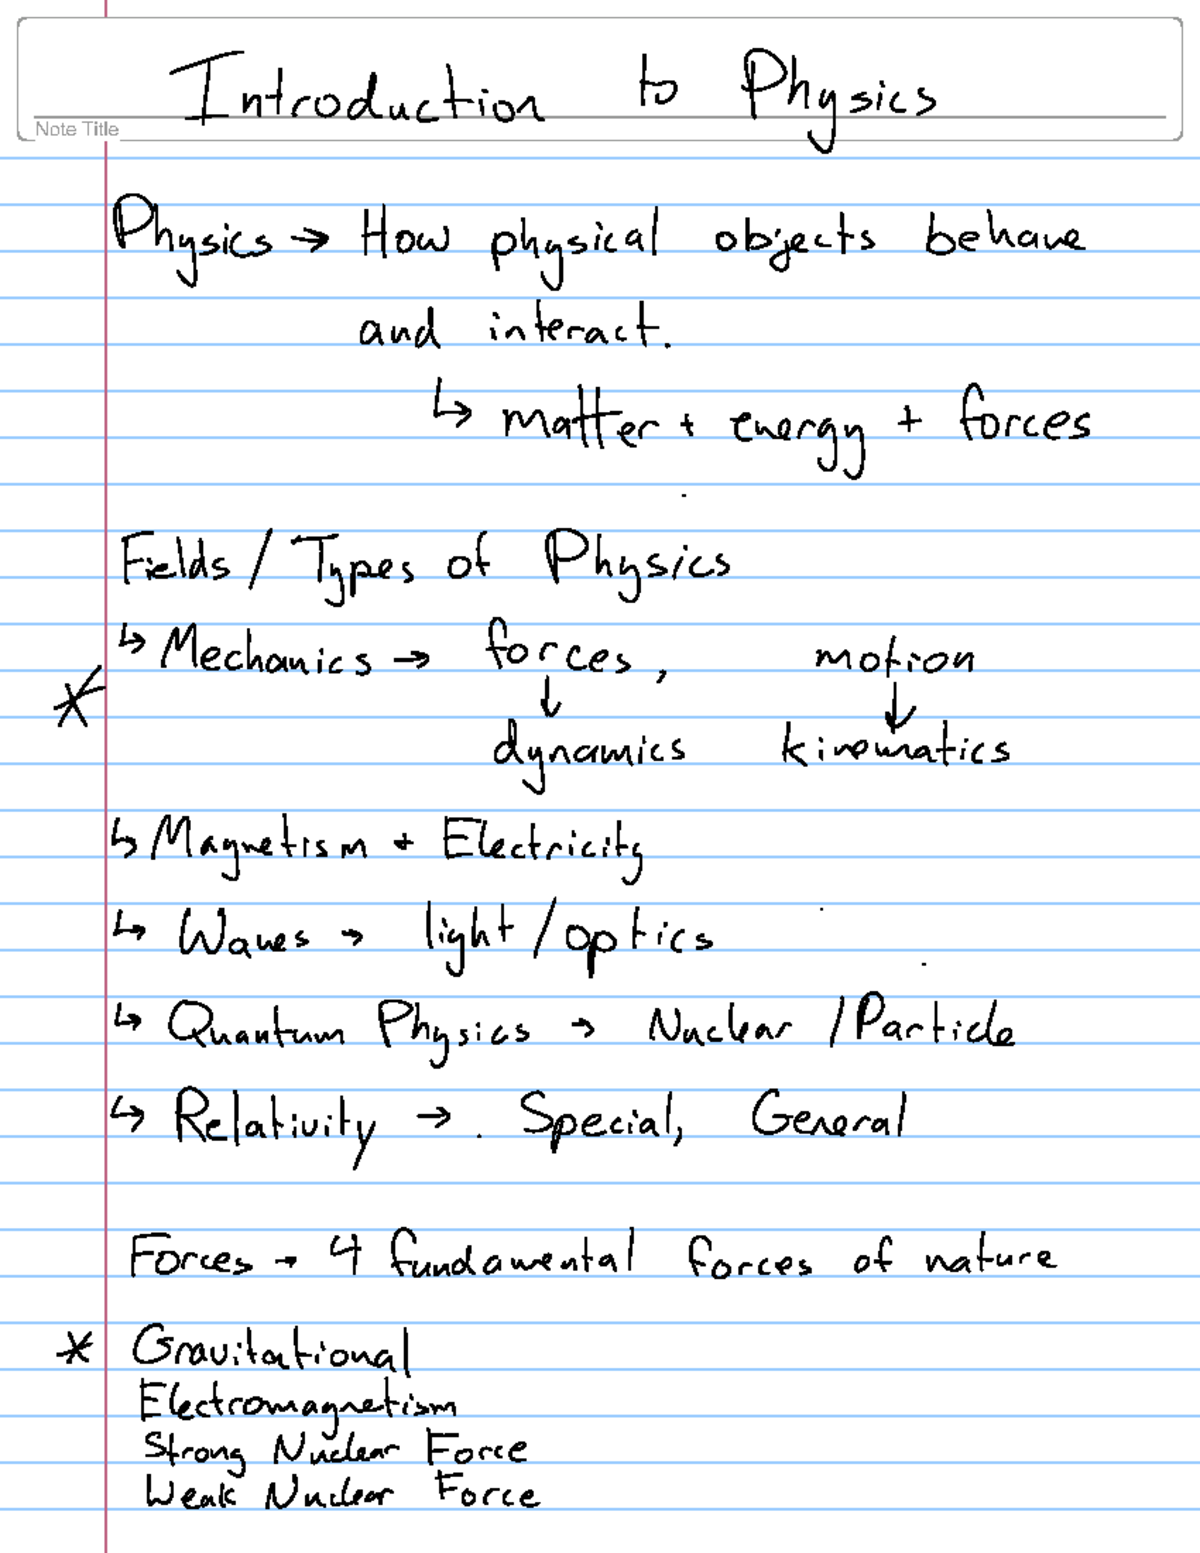 Introduction to Physics
Note Title
Physics → How physical objects behave
and interact.
↳ matter + energy + forces
Fields / Types of Physics
↳ Mechanics → forces, motion
↓ ↓
* dynamics kinematics
↳ Magnetism + Electricity
↳ Waves → light / optics
↳ Quantum Physics → Nuclear / Particle
↳ Relativity → Special, General
Forces → 4 fundamental forces of nature
* Gravitational
Electromagnetism
Strong Nuclear Force
Weak Nuclear Force